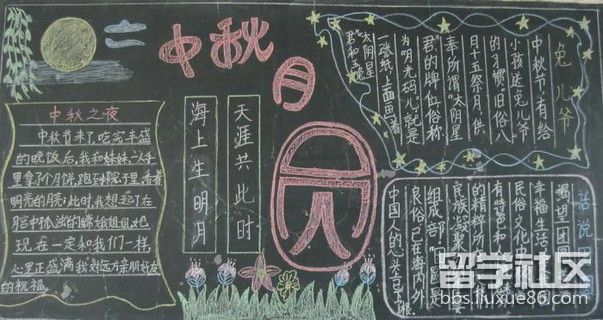 中秋月
圆
中秋之夜
中秋节来了,吃完丰盛
的晚饭后,我和妹妹一人手
里拿个月饼,跑到院子里,看着
明亮的月亮,此时,我想起了在
月宫中孤独的嫦娥姐姐,她
现在一定和我们一样,
心里正盛满我对远方亲朋好友
的祝福。
海上生明月
天涯共此时
兔儿爷
中秋节有给
小孩送"兔儿爷"
的习惯。旧俗八
月十五祭月,供
奉所谓"太阴星
君"的牌位,俗称
为"月光码儿",就是
一张纸,上面画着
太阴星
君和玉兔
话说团
渴望团圆
幸福生活
民俗文化
有特
的精粹所
民族凝聚
组成部 团圆是
良俗,已在海内外
中国人的心
留学社区
bbs.liuxue86.com